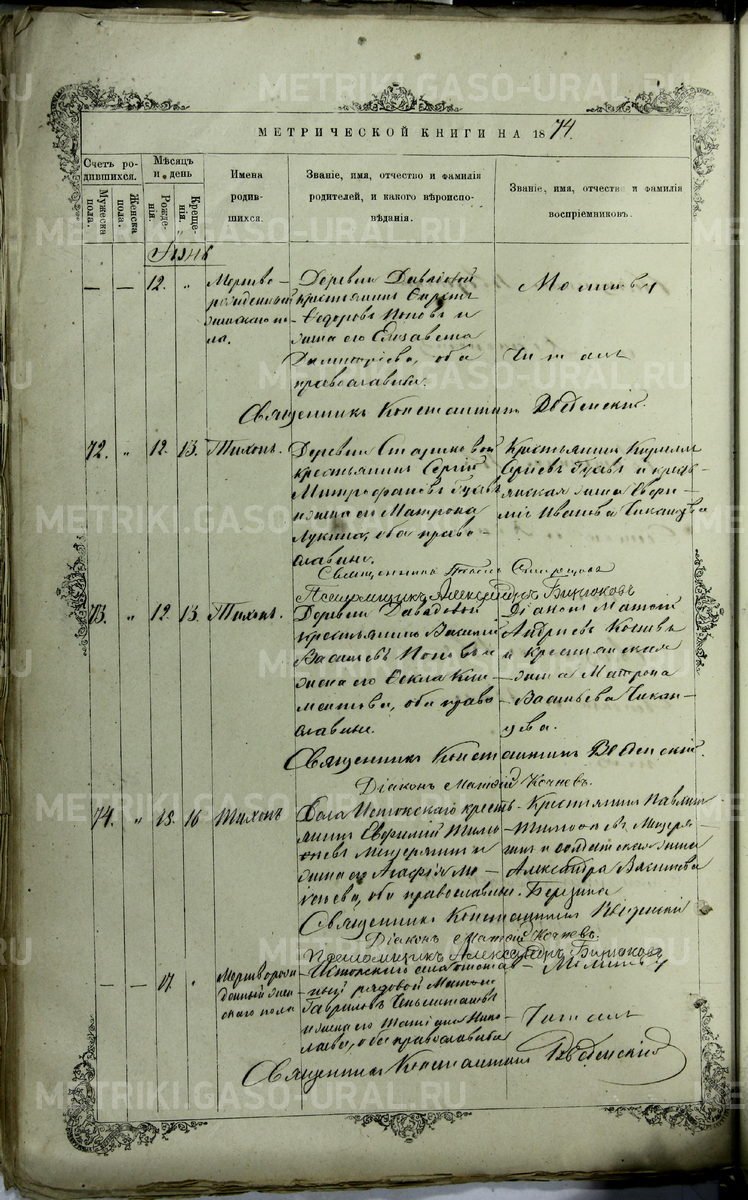 МЕТРИЧЕСКОЙ КНИГИ НА 1874.
Счетъ ро-
дившихся.
Мужеска
пола.
Женска
пола.
Мѣсяцъ
и день
Рожде-
нія.
Креще-
нія.
Имена
родив-
шихся.
Званіе, имя, отчество и фамилія
родителей, и какого вѣроиспо-
вѣданія.
Званіе, имя, отчество и фамилія
воспріемниковъ.
Іюнь
— — 12. „
Мертво-
рожденный
женскаго по-
ла.
Деревни
крестьянинъ
Ѳедоровъ Поповъ и
жена его Елизавета
Димитріева, оба
православные.
Молитву
Читалъ
Священникъ Константинъ Введенскій.
72. „ 12. 13. Тихонъ.
Деревни Стариковой
крестьянинъ Сергій
Митрофановъ Гусевъ
и жена его Матрона
Лукина, оба право-
славные.
Крестьянинъ Кириллъ
Гусевъ и кресть-
янская жена
Иванова
Священникъ
Псаломщикъ Александръ Бирюковъ
73. „ 12. 13. Тихонъ.
Деревни Давыдовой
крестьянинъ Василій
Васильевъ Поповъ и
жена его Ѳекла Кли-
ментова, оба право-
славные.
Діаконъ Матѳей
Андреевъ
и крестьянская
жена Матрона
Васильева
Священникъ Константинъ Введенскій.
Діаконъ Матѳей Кочневъ.
74. „ 15. 16 Тихонъ
Села Истокскаго кресть-
янинъ Евфимій
Мещерягинъ и
жена его Агафія
оба православные.
Крестьянинъ Павелъ
Тимофеевъ Мещеря-
гинъ и солдатская жена
Александра
Березина
Священникъ Константинъ Введенскій
Діаконъ Матѳей Кочневъ.
Псаломщикъ Александръ Бирюковъ
— — 17. „
Мертворож-
денный жен-
скаго пола
рядовой
Гавриловъ
и жена его
оба православные
Молитву
Читалъ
Священникъ Константинъ Введенскій
METRIKI.GASO-URAL.RU